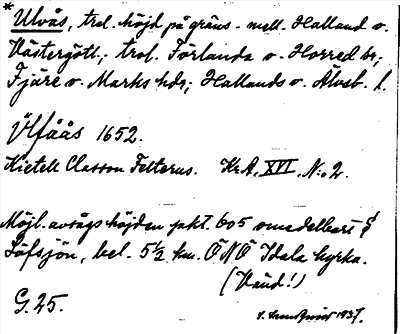 * Ulvås, trol. höjd på gräns. mell. Halland o.
Västergötl., trol. Förlanda o. Horred sn;
Fjäre o. Marks hdr; Hallands o. Älvsb. l.
Ülfåås 1652.
Kietell Classon Felterus. Kr.A. XVI, N:o 2.
Möjl. avsågs höjden pkt. 605 omedelbart S
Löfsjön, bel. 5½ km. ÖNÖ Idala kyrka.
(Vänd!)
G. 25.
1937.